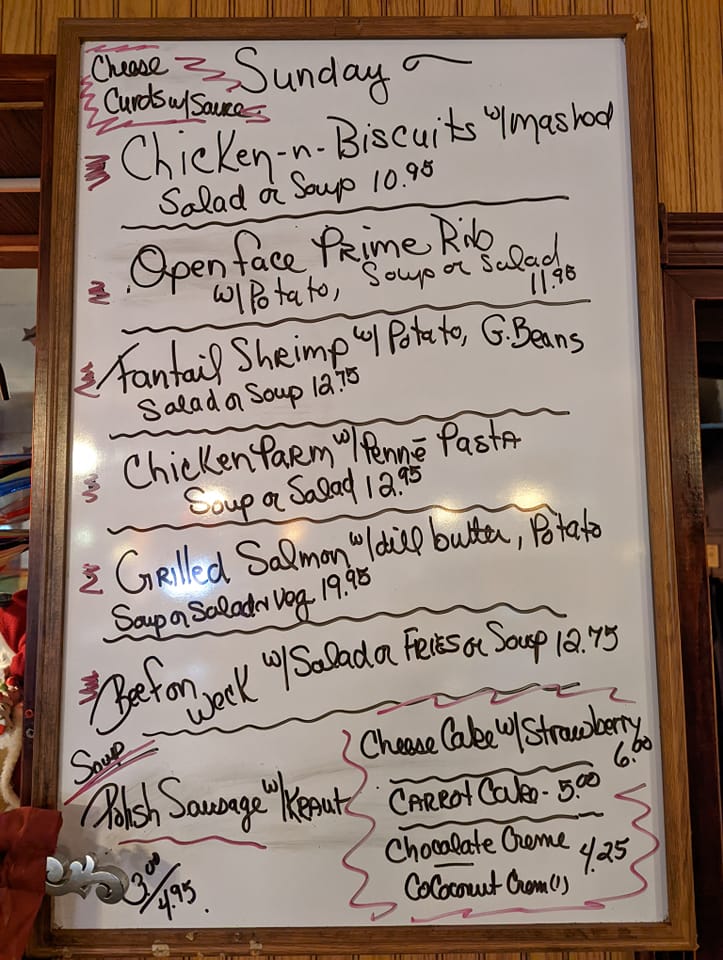 Cheese
Curds w/ Sauce
Sunday
Chicken-n-Biscuits w/ mashed
Salad or Soup 10.95
Open face Prime Rib
w/ Potato, Soup or Salad
11.95
Fantail Shrimp w/ Potato, G. Beans
Salad or Soup 12.75
Chicken Parm w/ Penne Pasta
Soup or Salad 12.95
Grilled Salmon w/ dill butter, Potato
Soup or Salad Veg 19.95
Beef on Weck w/ Salad or FRIES or Soup 12.75
Soup
Polish Sausage w/ KRAUT
3.00/4.95.
Cheese Cake w/ Strawberry
6.00
CARROT Cake - 5.00
Chocalate Creme 4.25
CoCoconut Crem(1)